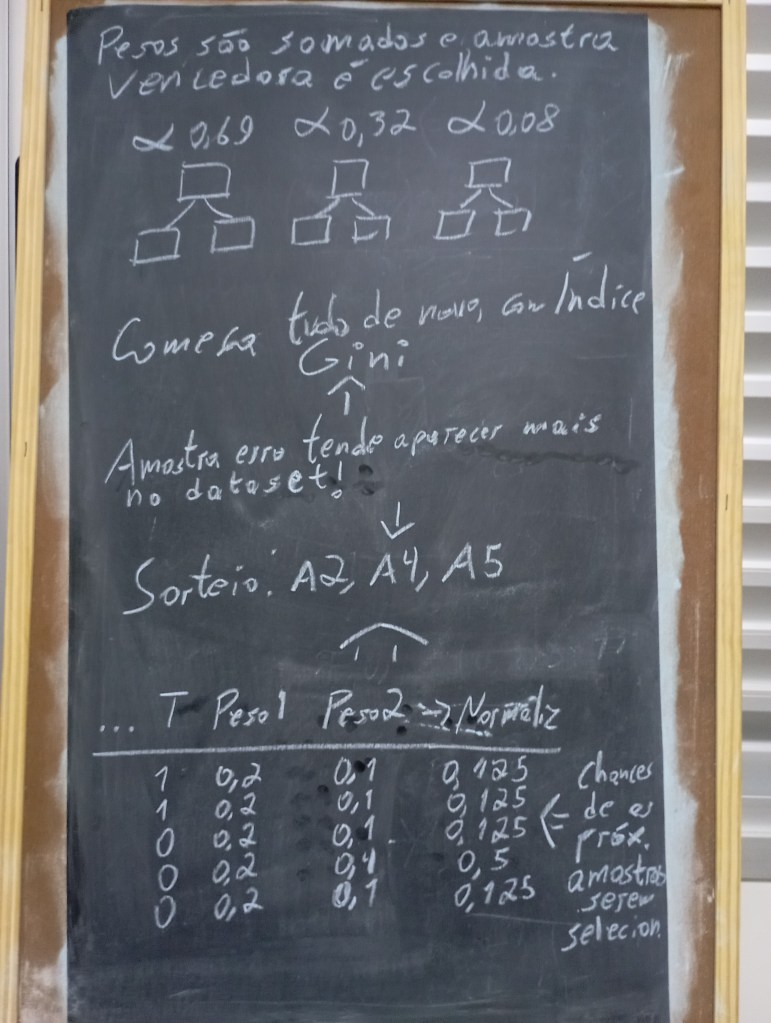 Pesos são somados e amostra
vencedora é escolhida.
α 0,69 α 0,32 α 0,08
Começa tudo de novo, com Índice
Gini
Amostra erro tende aparecer mais
no dataset!
Sorteio: A2, A4, A5
... T Peso1 Peso2 -> Normaliz
1 0,2 0,1 0,125
1 0,2 0,1 0,125
0 0,2 0,1 0,125
0 0,2 0,4 0,5
0 0,2 0,1 0,125
Chances
de as
próx.
amostras
serem
selecion.